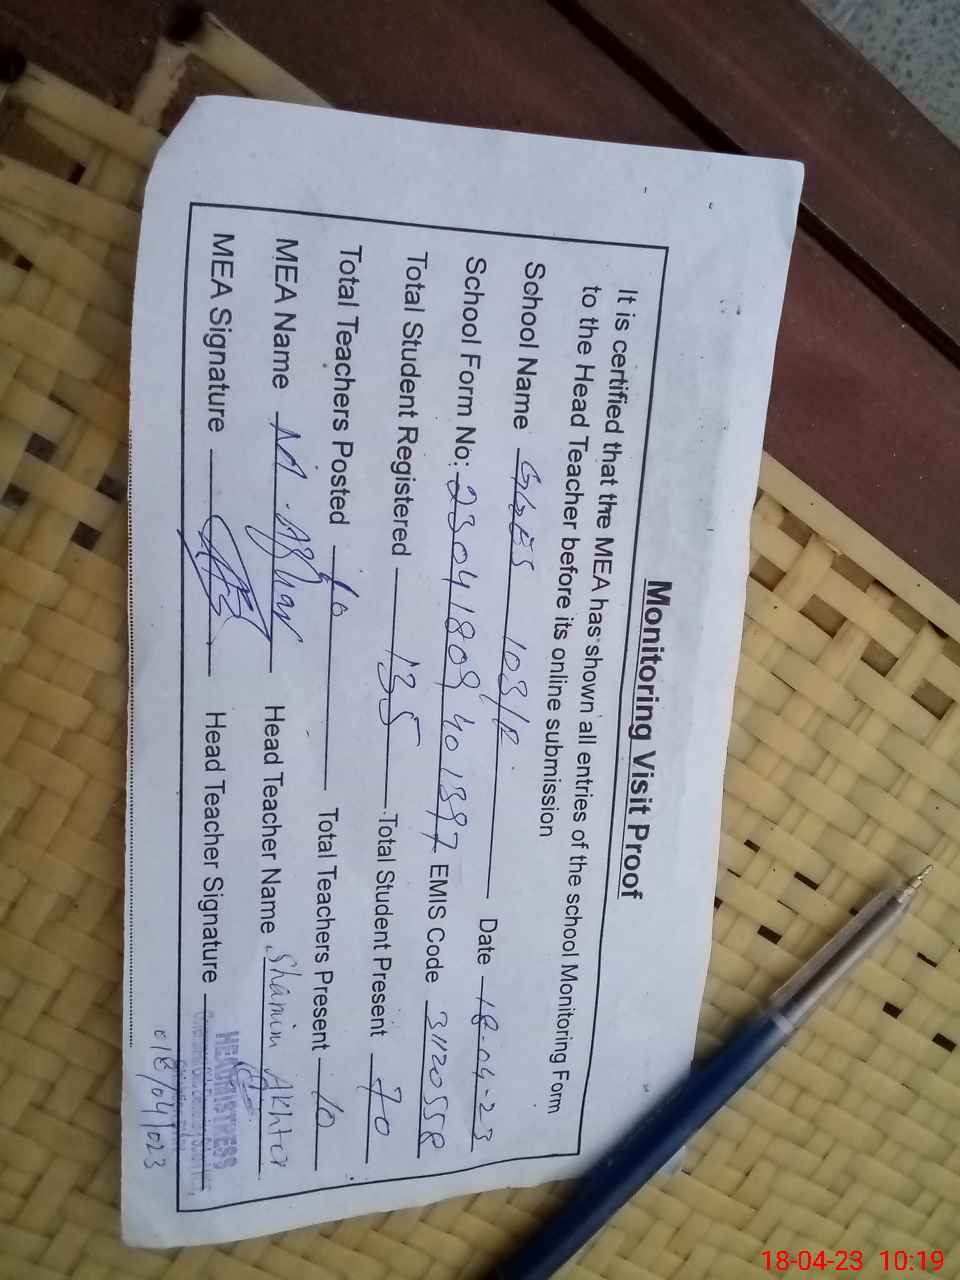 Monitoring Visit Proof
It is certified that the MEA has shown all entries of the school Monitoring Form
to the Head Teacher before its online submission
School Name GGES 103/P Date 18-04-23
School Form No: 23041809401397 EMIS Code 31120558
Total Student Registered 135 Total Student Present 70
Total Teachers Posted 10 Total Teachers Present 10
MEA Name M. Head Teacher Name Shamim Akhter
MEA Signature Head Teacher Signature
HEADMISTRESS
18/04/023
18-04-23 10:19